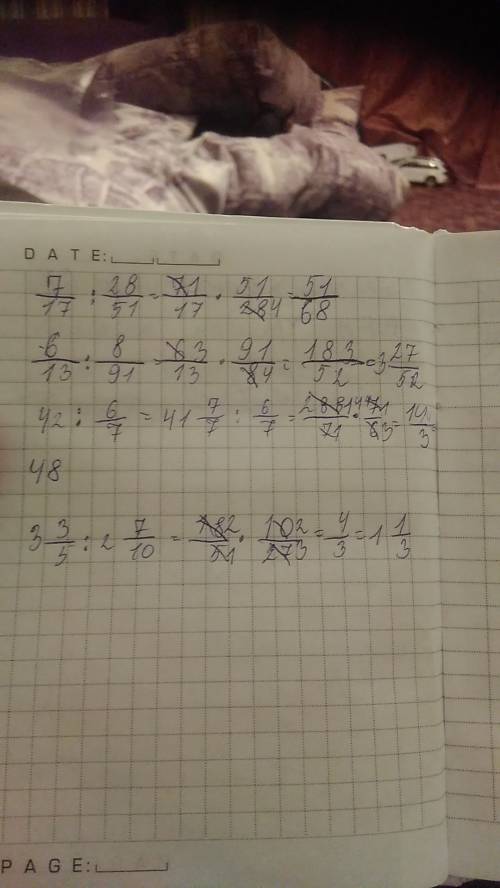 DATE:
7/17 : 28/51 = 71/17 · 51/284 = 51/68
6/13 : 8/91 = 63/13 · 91/84 = 183/52 = 3 27/52
42 : 6/7 = 41 7/7 : 6/7
48
3 3/5 : 2 7/10 = 182/51 · 102/273 = 4/3 = 1 1/3
PAGE: